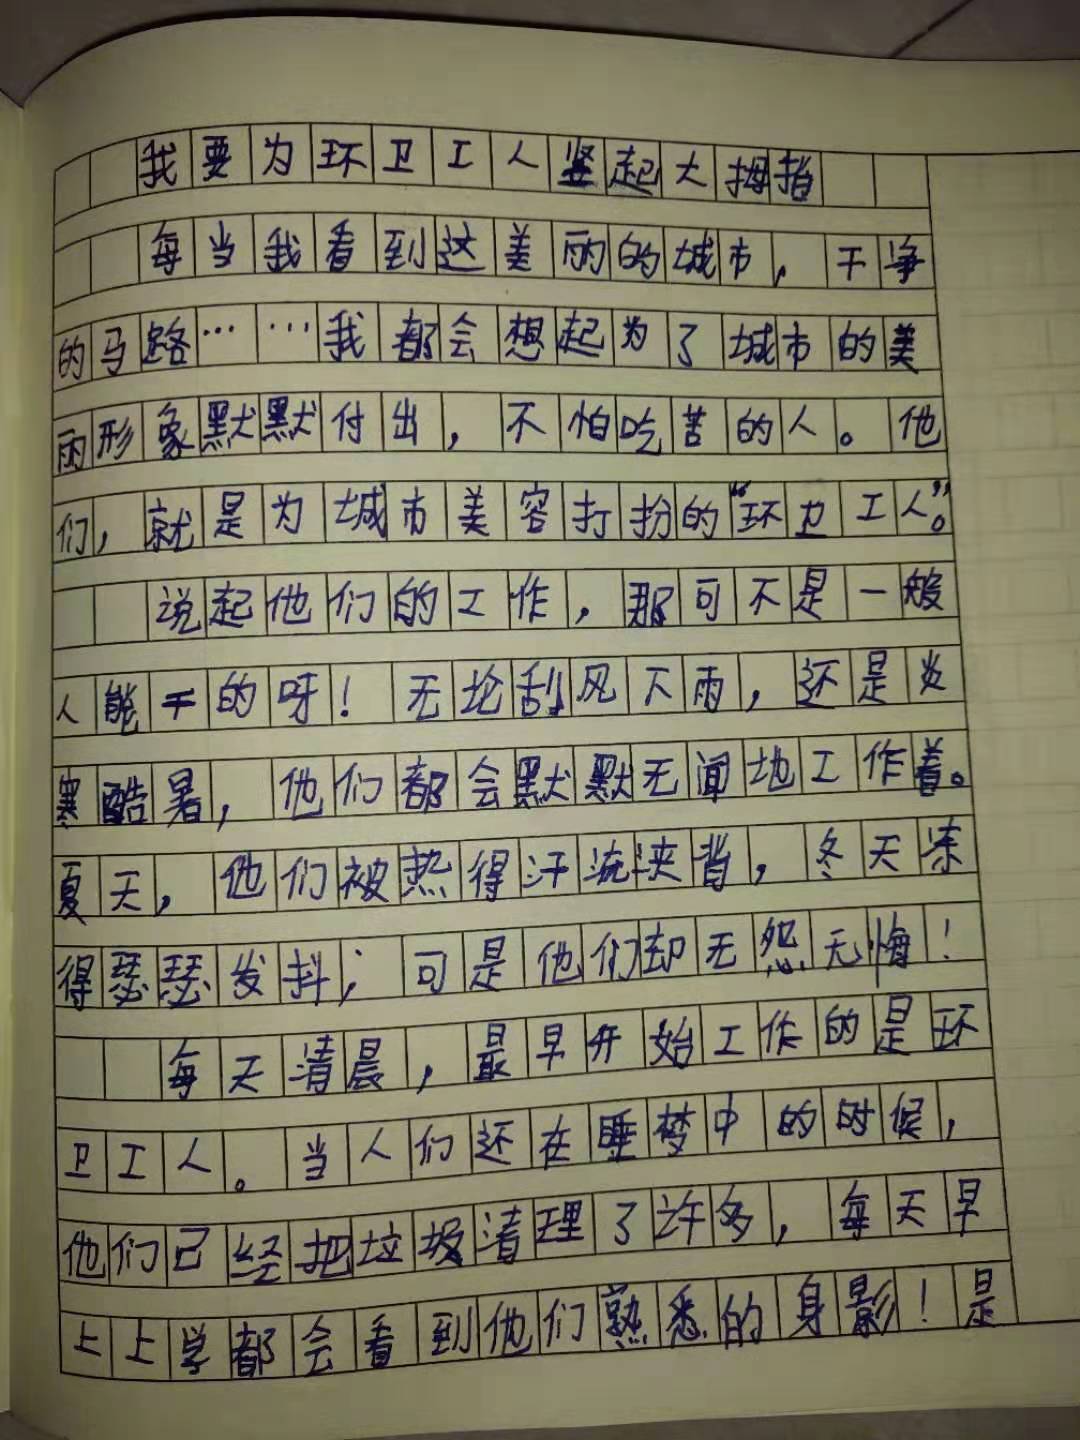 我要为环卫工人竖起大拇指
每当我看到这美丽的城市，干净
的马路……我都会想起为了城市的美
丽形象默默付出，不怕吃苦的人。他
们，就是为城市美容打扮的“环卫工人”。
说起他们的工作，那可不是一般
人能干的呀！无论刮风下雨，还是炎
寒酷暑，他们都会默默无闻地工作着。
夏天，他们被热得汗流浃背，冬天冻
得瑟瑟发抖；可是他们却无怨无悔！
每天清晨，最早开始工作的是环
卫工人。当人们还在睡梦中的时候，
他们已经把垃圾清理了许多，每天早
上上学都会看到他们熟悉的身影！是